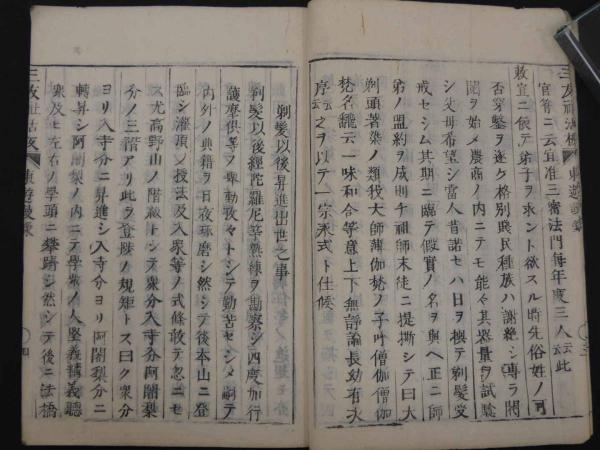 官符ニ云宜准三審法門毎年度三人云云此
敕宜ニ便テ弟子ヲ求ント欲スル時先俗姓ノ可
否穿鑿ヲ遂ケ格別賎民種族ハ謝絶シ専ラ閥
閲ヲ始メ農商ノ内ニテモ能々其器量ヲ試驗
シ父母希望シ當人昔諾セハ日ヲ撰テ剃髪受
戒セシム其期ニ臨テ假實ノ名ヲ與ヘ正ニ師
弟ノ盟約ヲ成則チ祖師末徒ニ提撕シテ曰大
剃頭著染ノ類我大師薄伽梵ノ子ナリ呼僧伽
梵名翻云一味和合等意上下無諍論長幼有次
序云云之ヲ以テ一宗ノ式ト仕候
剃髪以後昇進出世之事
剃髪以後經陀羅尼等熟練ヲ勘察シ四度加行
護摩供等ヲ畢勤孜々トシテ勤苦セシメ嗣テ
内外ノ典籍ヲ日夜琢磨シ然シテ後本山ニ登
臨シ灌頂ノ授法及入衆等ノ式修敢テ忽ニセ
ス尤高野山ノ階級トシテ衆分入寺分阿闍梨
分ノ三階アリ此ヲ登陟ノ規矩トス曰ク衆分
ヨリ入寺分ニ昇進シ入寺分ヨリ阿闍梨分ニ
轉昇シ阿闍梨ノ内ニテ學業ノ人堅義精義聽
衆及ヒ左右ノ學頭ニ攀躋シ然シテ後ニ法橋
東遊
四